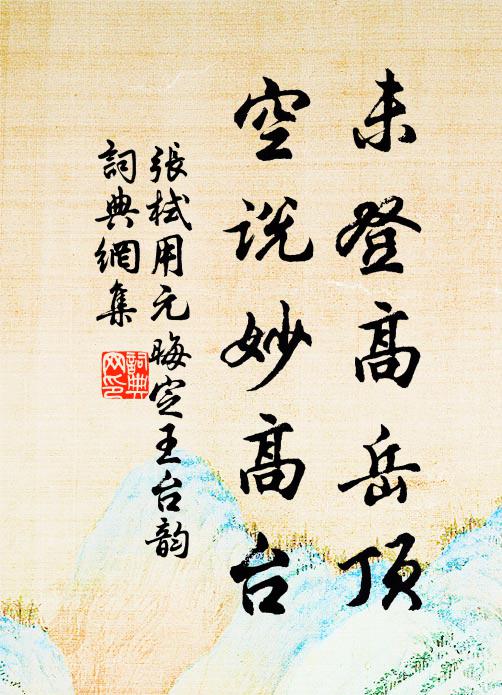 未登高岳顶
空说妙高台
張栻用元晦定王台韵
詞典網集
詞典网印